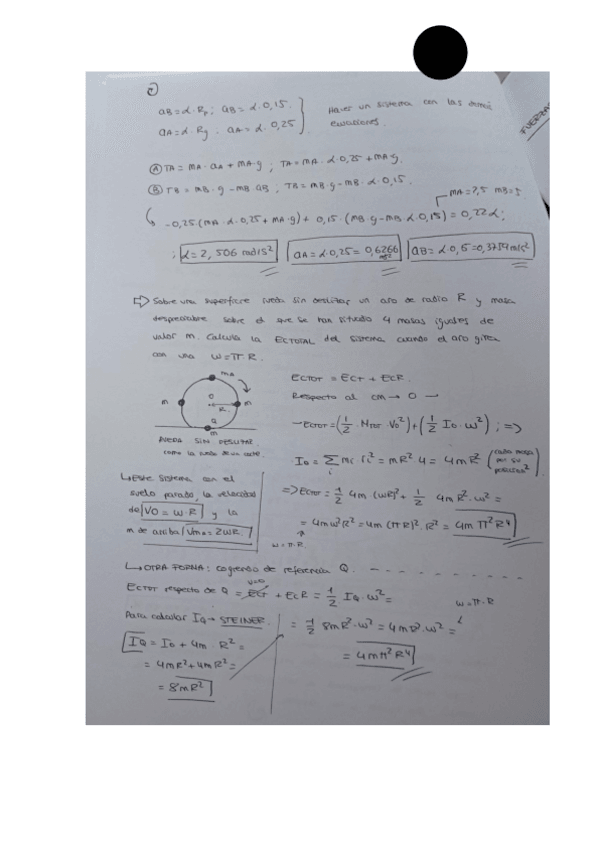 aB = α·Rp ; aB = α·0,15.
aA = α·Rg . aA = α·0,25
Hacer un sistema con las demás
ecuaciones.
FUERZAS
Ⓐ TA = mA·aA + mA·g ; TA = mA·α·0,25 + mA·g.
Ⓑ TB = mB·g - mB·aB ; TB = mB·g - mB·α·0,15.
mA=2,5 mB=5
-0,25·(mA·α·0,25 + mA·g) + 0,15·(mB·g - mB·α·0,15) = 0,22α;
; α = 2,506 rad/s² aA = α·0,25 = 0,6266 m/s² aB = α·0,15 = 0,3759 m/s²
⇨ Sobre una superficie rueda sin deslizar un aro de radio R y masa
despreciable sobre el que se han situado 4 masas iguales de
valor m. Calcula la ECTOTAL del sistema cuando el aro gira
con una ω=π·R.
ma
m O R m
Q
m
RUEDA SIN DESLIZAR
como la rueda de un coche.
ECTOT = ECT + ECR.
Respecto al cm → O →
→ ECTOT = (1/2 · MTOT · VO²) + (1/2 IO·ω²) ; =>
IO = Σi mi·ri² = mR²·4 = 4mR² (cada masa por su posición²)
=> ECTOT = 1/2 4m (ωR)² + 1/2 4mR²·ω² =
= 4mω²R² = 4m (πR)²·R² = 4mπ²R⁴
ω=π·R
↳ Este sistema, con el
suelo parado, la velocidad
de VO = ω·R y la
m de arriba Vma = 2ωR.
↳ OTRA FORMA: cogiendo de referencia Q.
ECTOT respecto de Q = ECT + ECR = 1/2 IQ·ω² =
v=0
ω=π·R
Para calcular IQ → STEINER.
IQ = IO + 4m·R² =
= 4mR² + 4mR² =
= 8mR²
= 1/2 8mR²·ω² = 4mR²·ω² =
= 4mπ²R⁴